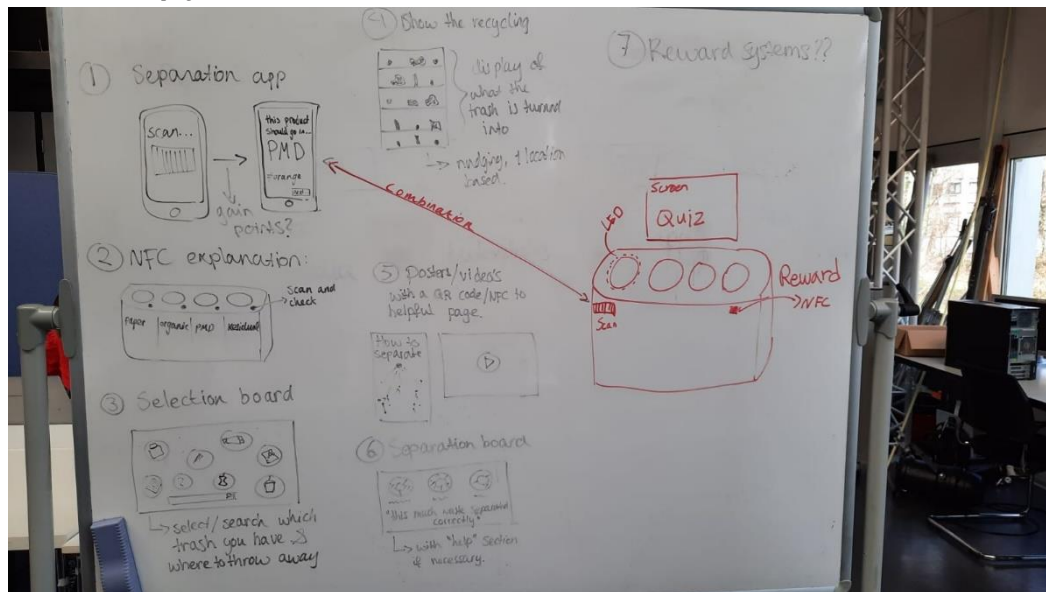 ① Separation app
scan...
this product
should go in...
PMD
=orange
gain
points?
② NFC explanation:
Scan and
check
Paper
organic
PMD
residual
③ Selection board
select/search which
trash you have &
where to throw away
④ Show the recycling
display of
what the
trash is turned
into
nudging, location
based.
⑤ posters/video's
with a QR code/NFC to
helpful page.
How to
separate
⑥ Separation board
"this much waste separated
correctly"
with "help" section
if necessary.
⑦ Reward systems??
combination
Screen
Quiz
LED
Scan
Reward
NFC